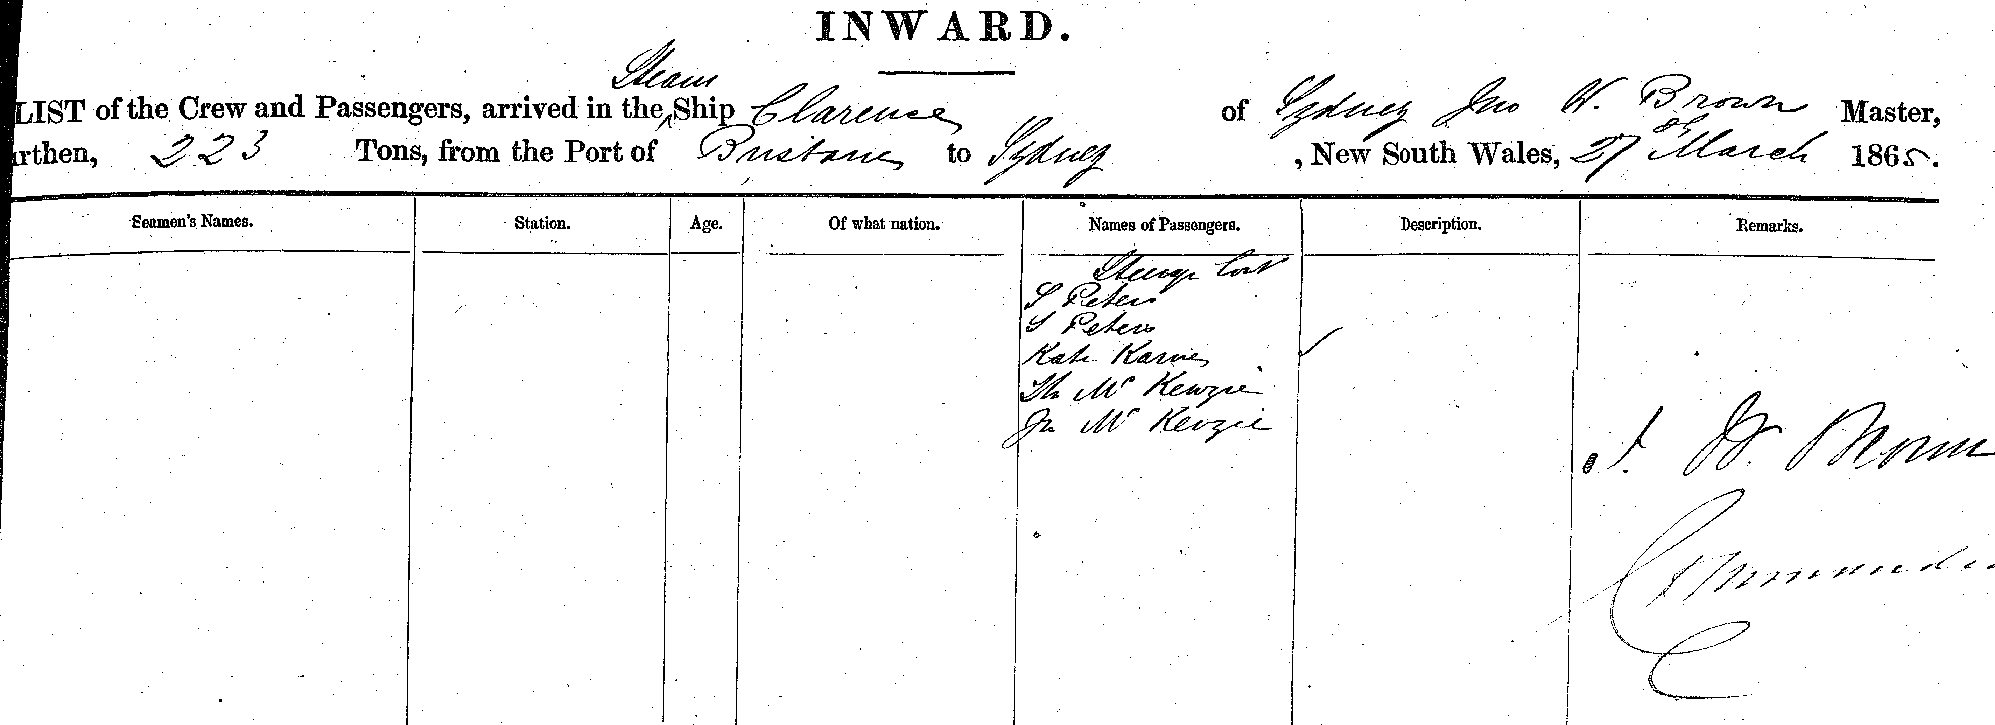 INWARD.
Steam
LIST of the Crew and Passengers, arrived in the Ship Clarence of Sydney Jno H. Brown Master,
rthen, 223 Tons, from the Port of Brisbane to Sydney , New South Wales, 27 March 1865.
Seamen's Names. Station. Age. Of what nation. Names of Passengers. Description. Remarks.
Steerage Cont
S Peters
S Peters
Kate
Th Mc Kenzie
Jn Mc Kenzie
Brown
Commander